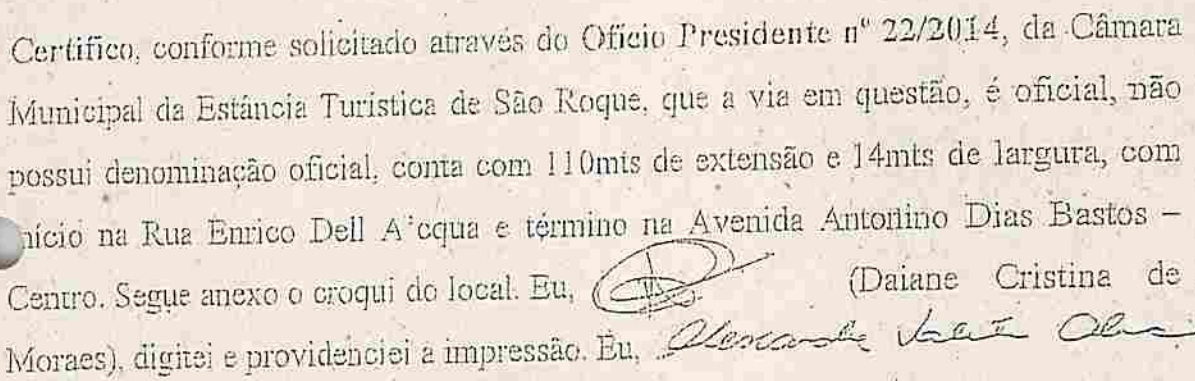 Certifico, conforme solicitado através do Ofício Presidente nº 22/2014, da Câmara
Municipal da Estância Turística de São Roque, que a via em questão, é oficial, não
possui denominação oficial, conta com 110mts de extensão e 14mts de largura, com
nício na Rua Enrico Dell A'cqua e término na Avenida Antonino Dias Bastos –
Centro. Segue anexo o croqui do local. Eu, (Daiane Cristina de
Moraes), digitei e providenciei a impressão. Eu,